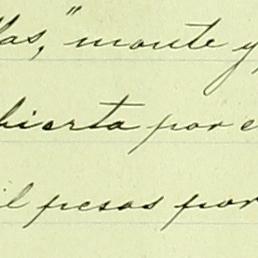 las," monte y
bierta por e
il pesos por